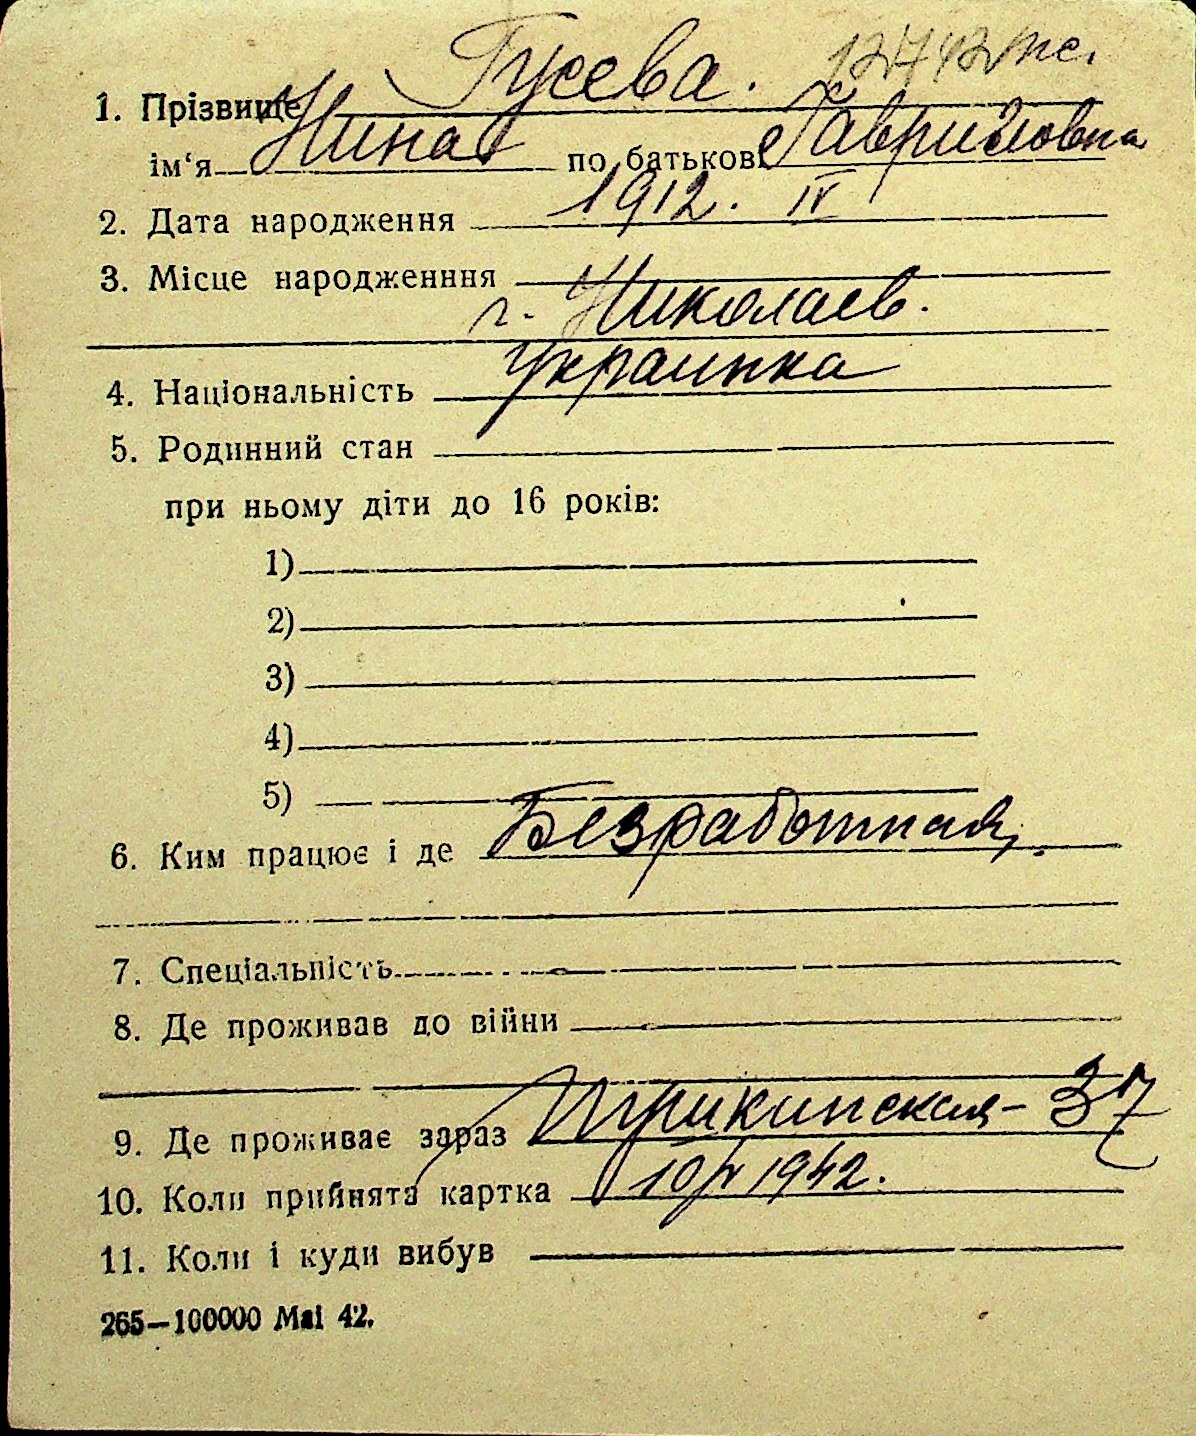 1. Прізвище Гусева. 12742 пс.
ім‘я Нина по батькові Гавриловна
2. Дата народження 1912. IV
3. Місце народженння
г. Николаев.
4. Національність Украинка
5. Родинний стан
при ньому діти до 16 років:
1)
2)
3)
4)
5)
6. Ким працює і де Безработная.
7. Спеціальність
8. Де проживав до війни
9. Де проживає зараз Пушкинская - 37
10. Коли прийнята картка 10/IV 1942.
11. Коли і куди вибув
265—100000 Маі 42.